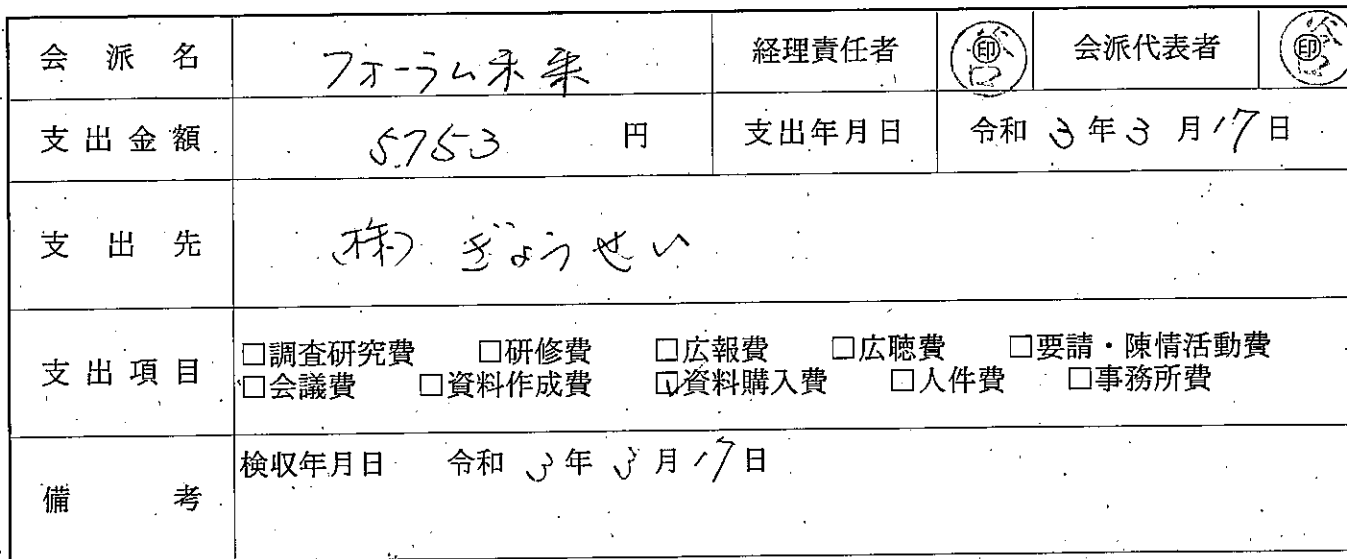 会派名 フォーラム未来 経理責任者 印 会派代表者 印
支出金額 5753 円 支出年月日 令和3年3月17日
支出先 (株)ぎょうせい
□調査研究費 □研修費 □広報費 □広聴費 □要請・陳情活動費
支出項目
□会議費 □資料作成費 ☑資料購入費 □人件費 □事務所費
検収年月日 令和3年3月17日
備考